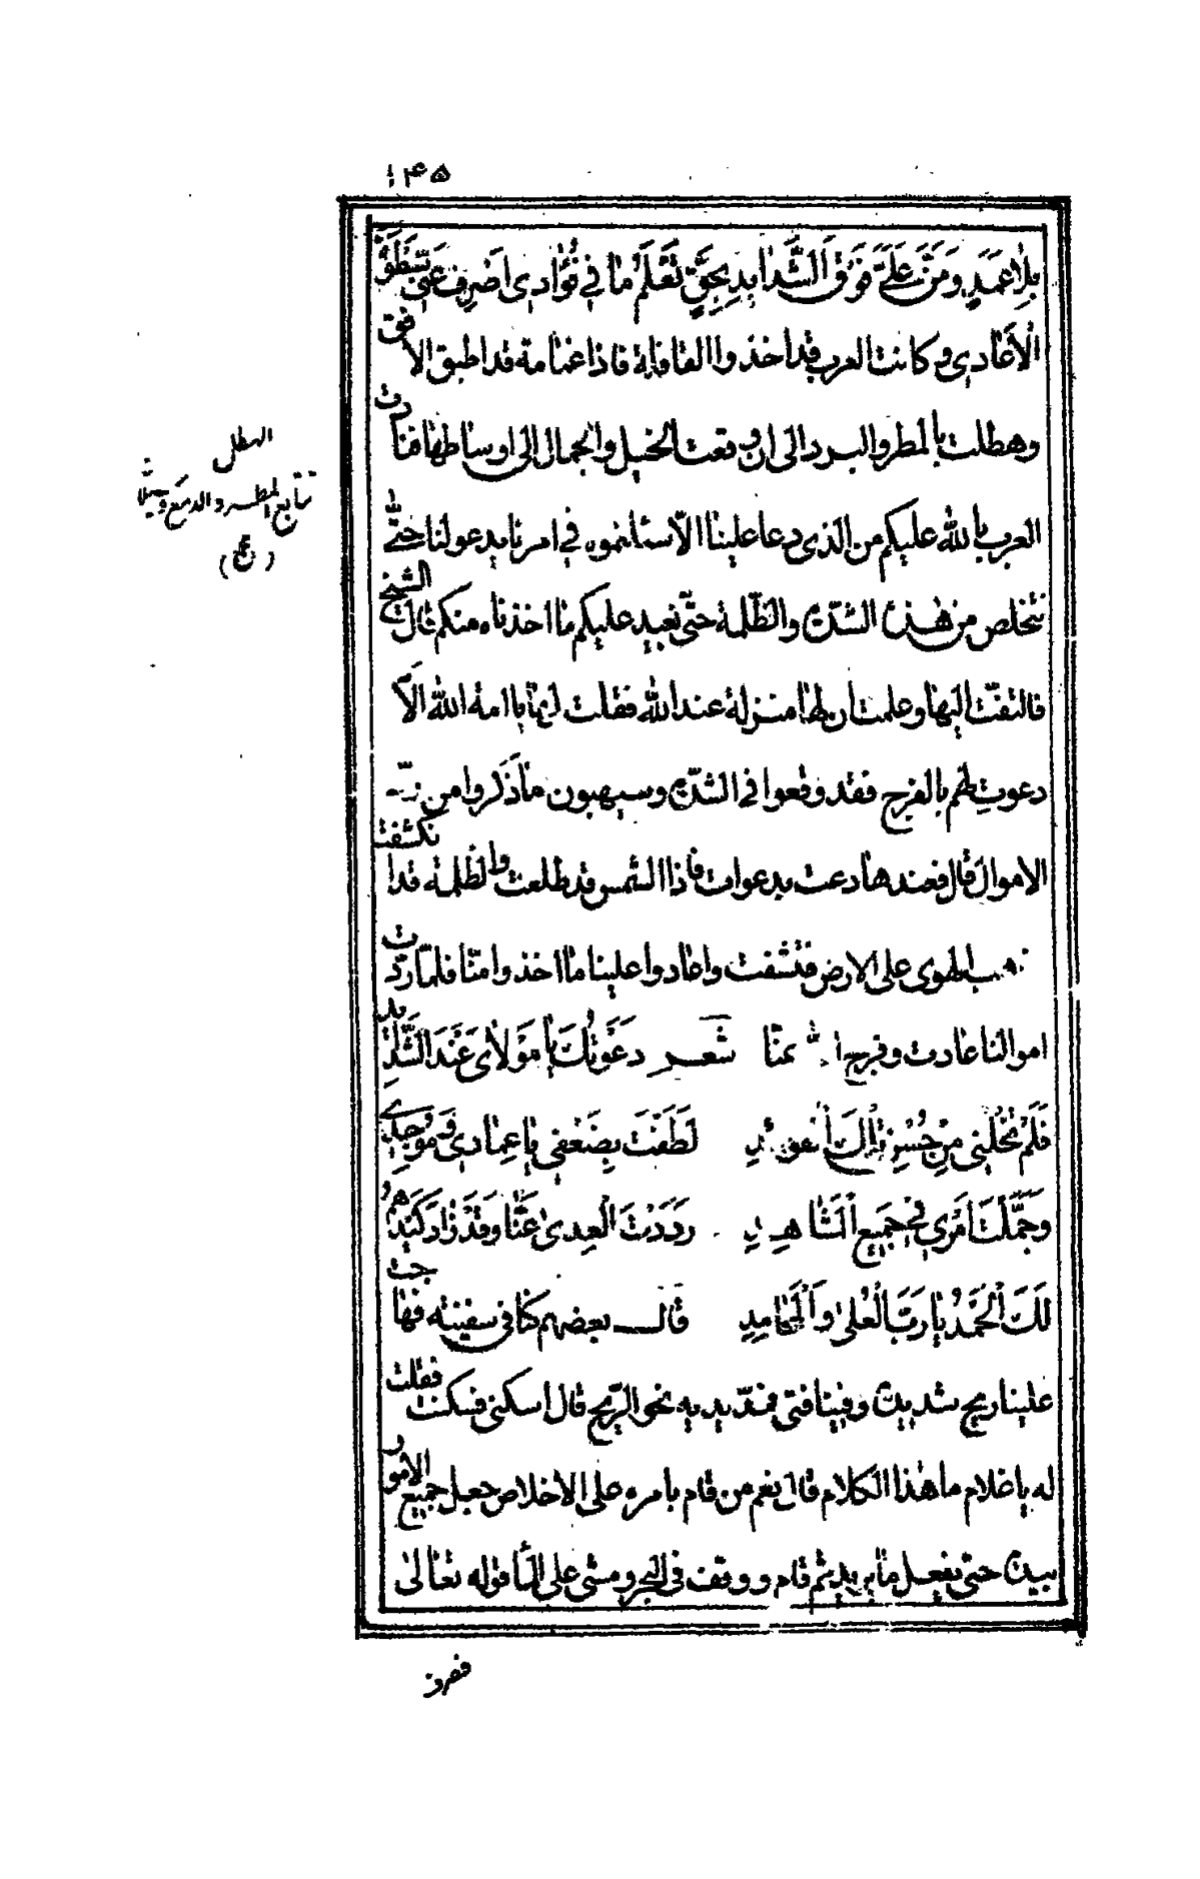 ۱۴۵
بِلا عَمَدٍ وَمَنْ عَلَيَّ فَوْقَ الشَّدَايِدِ بِحَقِّ تَعْلَمُ مَا فِي فُؤَادِي اصْرِفْ عَنّي
الْأَعَادِي وكانت العرب قد اخذوا القافلة فاذا غمامة قد اطبق الافق
وهطلت بالمطر والبرد الى ان وقعت الخيل والجمال الى اوساطها فنادت
العرب بالله عليكم من الذي دعا علينا الّا سئلتموه في امرنا يدعو لنا حتّى
نتخلص من هذه الشدّة والظّلمة حتّى نعيد عليكم ما اخذناه منكم قال الشيخ
فالتفتّ اليها وعلمت ان لها منزلة عند الله فقلت لها يا امة الله الّا
دعوتِ لهم بالفرج فقد وقعوا في الشدّة وسيهبون ما ذكروا من
الاموال قال فعندها دعت بدعوات فاذا الشمس قد طلعت والظلمة قد انكشفت
الهوى على الارض فنشفت واعادوا علينا ما اخذوا منّا فلمّا ردّت
اموالنا عادت وفرج الله عنّا شعر دَعَوْتُكَ يا مَوْلايَ عِنْدَ الشَّدَايِدِ
فَلَمْ تُخْلِنِي مِنْ حُسْنِ لَطَفْتَ بِضَعْفِي يا عِمادِي وَمُوجِدِي
وَجَمَّلْتَ أَمْرِي فِي جَمِيعِ الْمَشَاهِدِ رَدَدْتَ الْعِدى عَنَّا وَقَدْ زَادَ كَيْدُهُمْ
لَكَ الْحَمْدُ يا رَبَّ الْعُلى وَالْمَحامِدِ قال بعضهم كنّا في سفينة فهاجت
علينا ريح شديدة وفينا فتى فمدّ يديه نحو الريح قال اسكني فسكنت فقلت
له يا غلام ما هذا الكلام قال نعم من قام بامره على الاخلاص جعل جميع الامور
بيده حتى يفعل ما يريد ثم قام ووقف في البحر ومشى على الماء قوله تعالى
ففروا
الهطل
تتابع المطر والدمع وسيلانه
(مجمع)